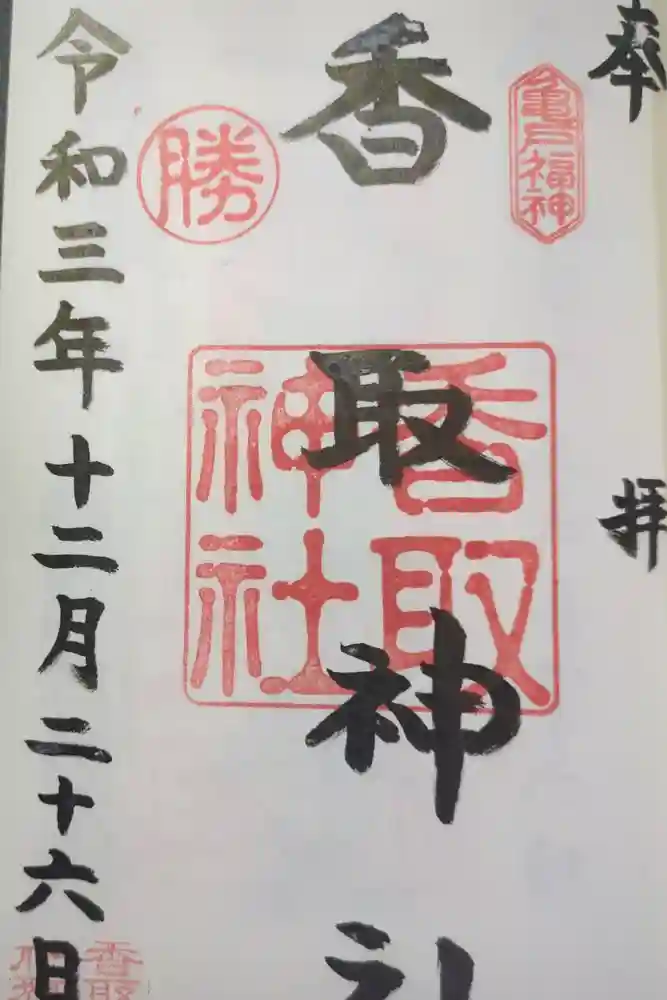 奉拝
亀戸福神
香取神社
香取神社
勝
令和三年十二月二十六日
香取